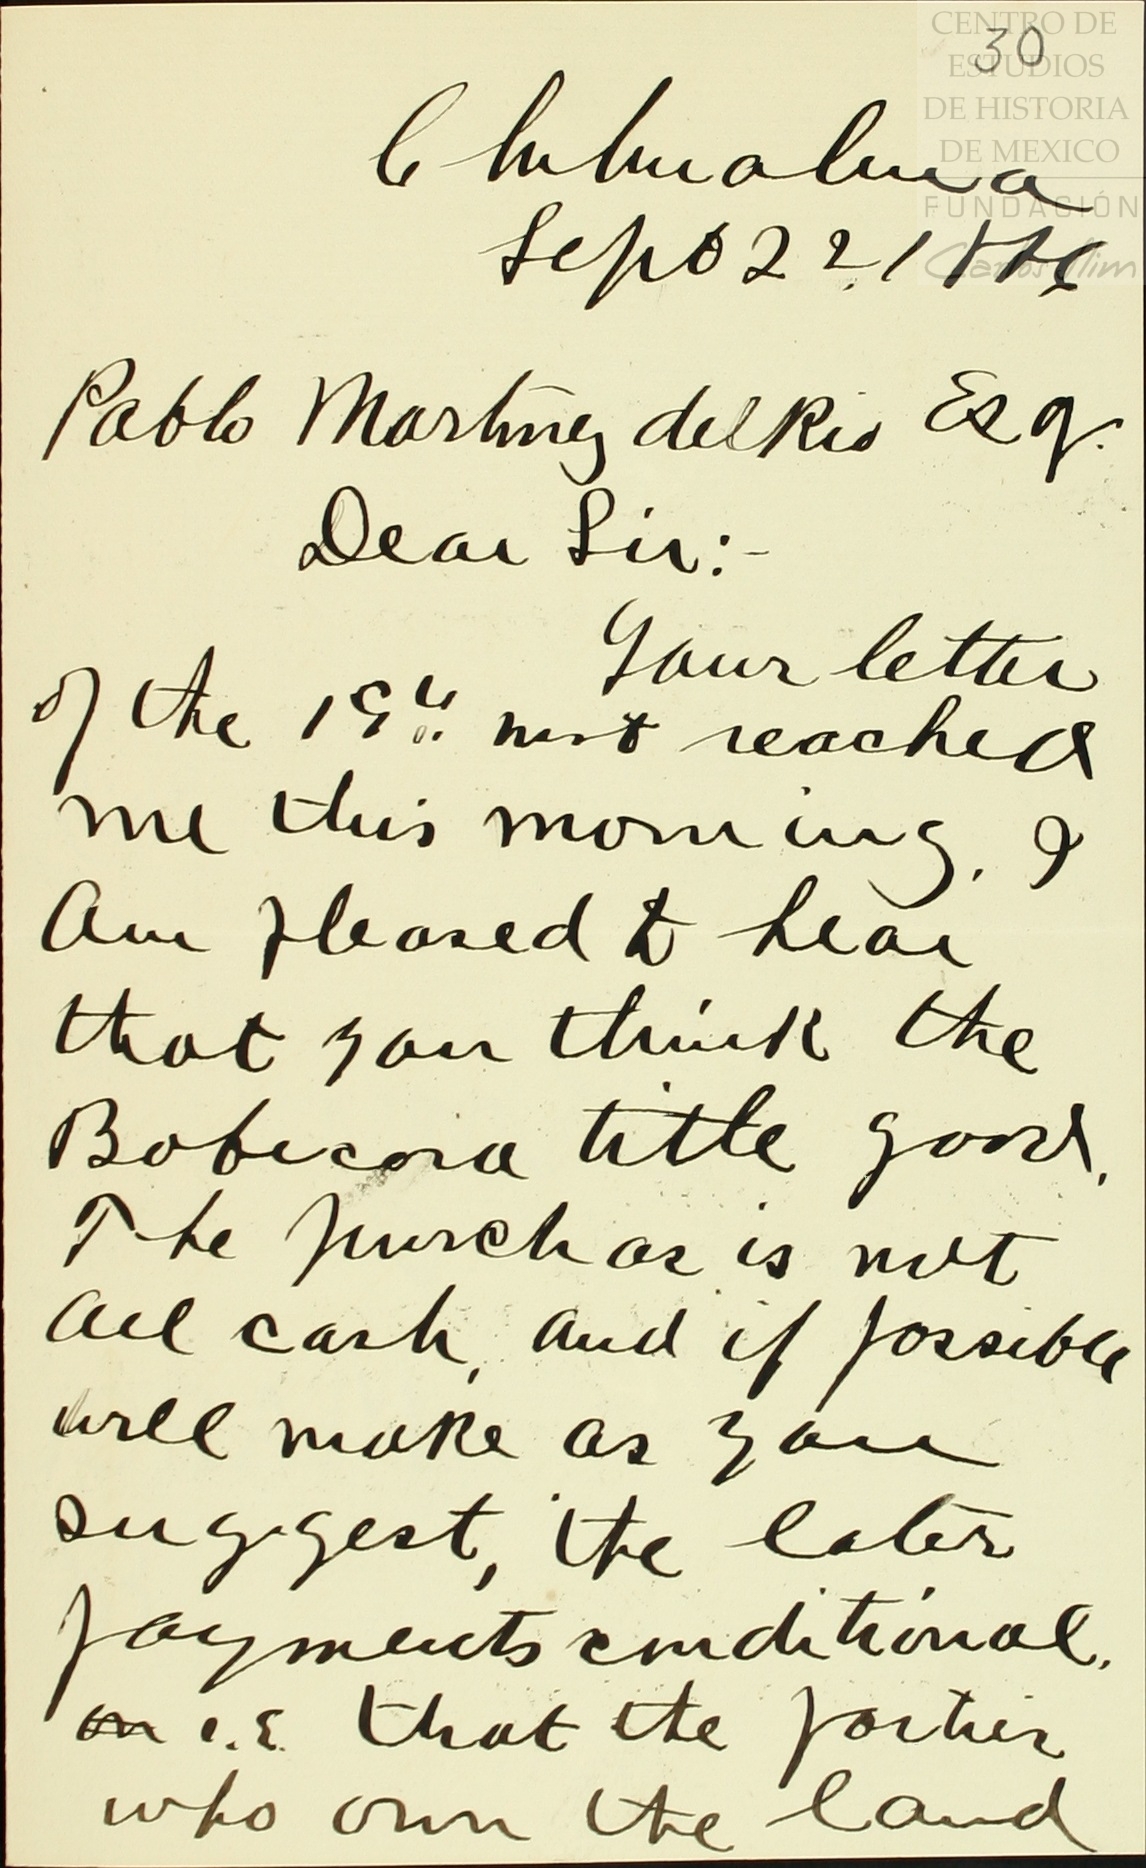 CENTRO DE
30
ESTUDIOS
DE HISTORIA
DE MEXICO
FUNDACIÓN
Carlos Slim
Chihuahua
Sept 22, 1886
Pablo Martinez del Rio Esq.
Dear Sir:-
Your letter
of the 19th reached
me this morning. I
am pleased to hear
that you think the
Babicora title good.
The purchas is not
all cash, and if possible
will make as you
suggest, the later
payments conditional.
on i.e. that the parties
who own the land